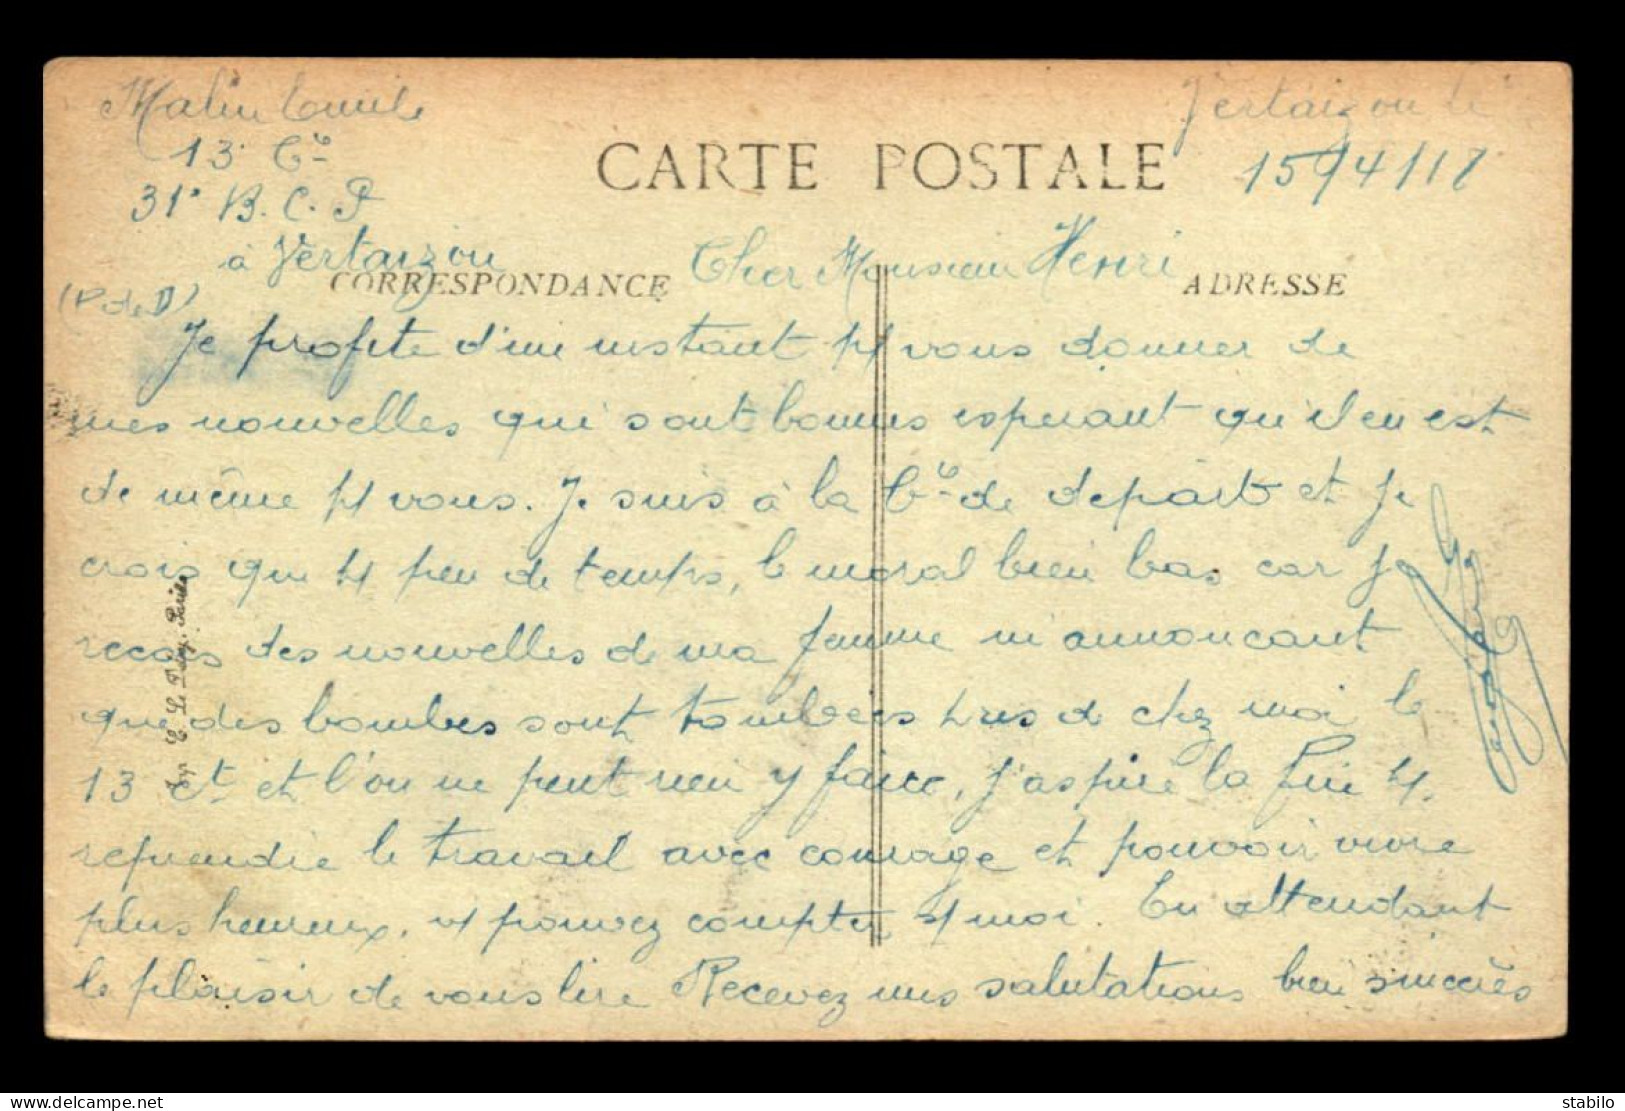 Malin Emile
13e Cie
31e B.C.P
à Vertaizon
(P. de D)
Vertaizon le
15/4/18
CARTE POSTALE
CORRESPONDANCE
ADRESSE
Cher Monsieur Henri
Je profite d'un instant pr vous donner de
mes nouvelles qui sont bonnes esperant qu'il en est
de même pr vous. Je suis à la Cie de départ et je
crois que pr peu de temps, le moral bien bas car je
reçois des nouvelles de ma femme m'annoncant
que des bombes sont tombées près de chez moi le
13 ct et l'on ne peut rien y faire, j'aspire la fin pr
reprendre le travail avec courage et pouvoir vivre
plus heureux. vs pouvez compter sr moi. En attendant
le plaisir de vous lire Recevez mes salutations bien sincères
Imp. E. Le Deley, Paris
www.delcampe.net
stabilo